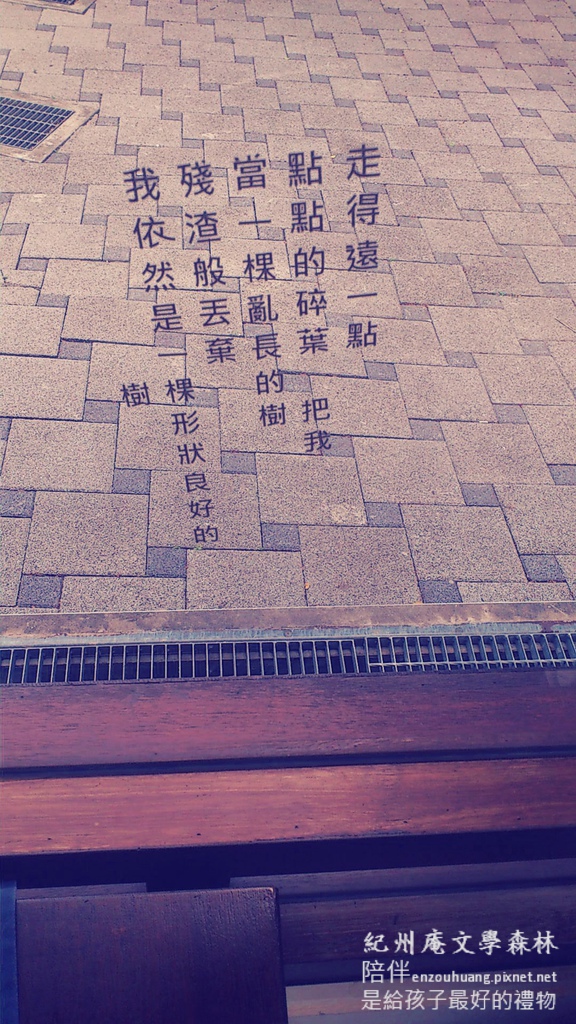 走得遠一點
點點的碎葉 把我
當一棵亂長的樹
殘渣般丟棄
我依然是一棵形狀良好的
樹
紀州庵文學森林
陪伴enzouhuang.pixnet.net
是給孩子最好的禮物